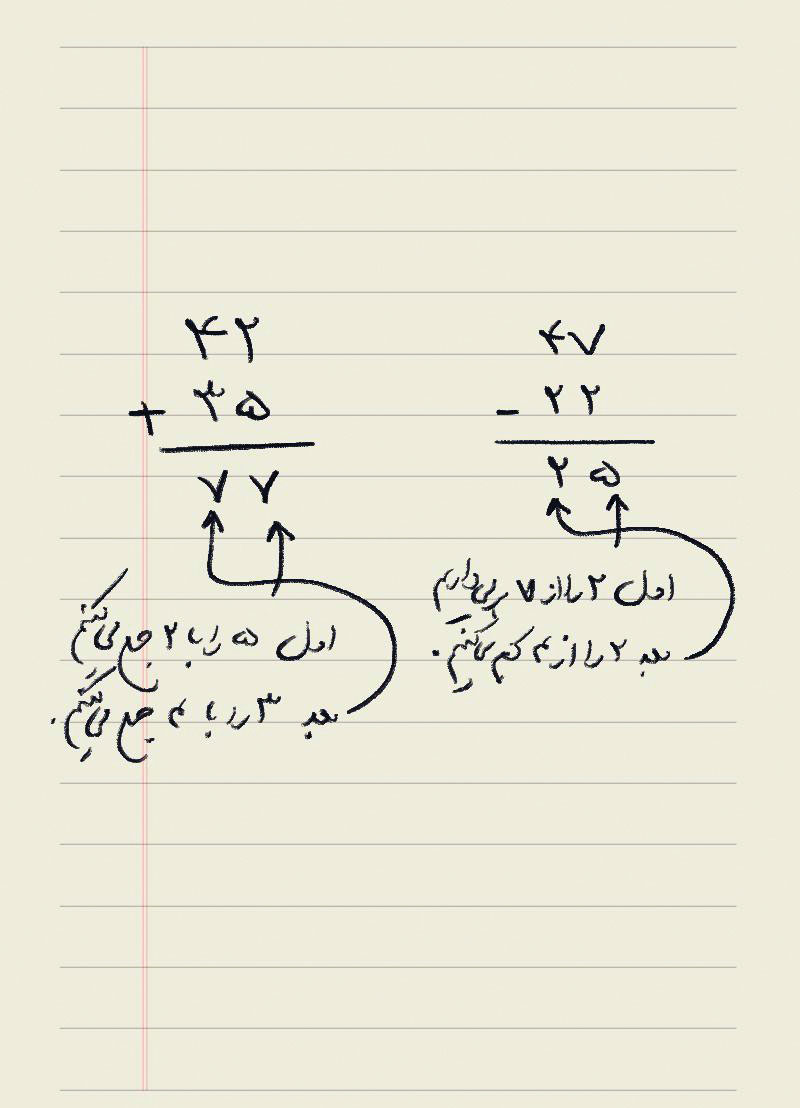 ۴۷
- ۲۲
۲۵
اول ۲ را از ۷ برمی‌داریم
بعد ۲ را از ۴ کم می‌کنیم.
۴۲
+ ۳۵
۷۷
اول ۵ را با ۲ جمع می‌کنیم
بعد ۳ را با ۴ جمع می‌کنیم.